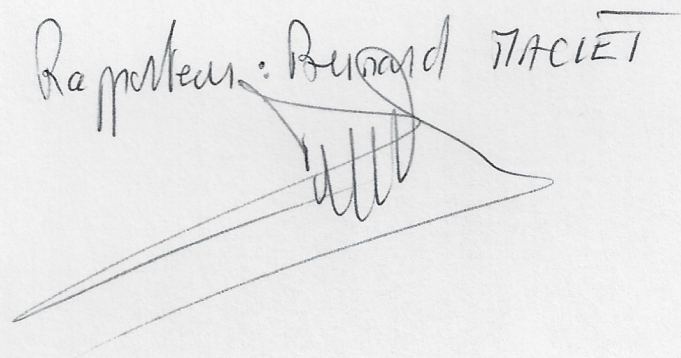 Rapporteur : Bernard MACLET